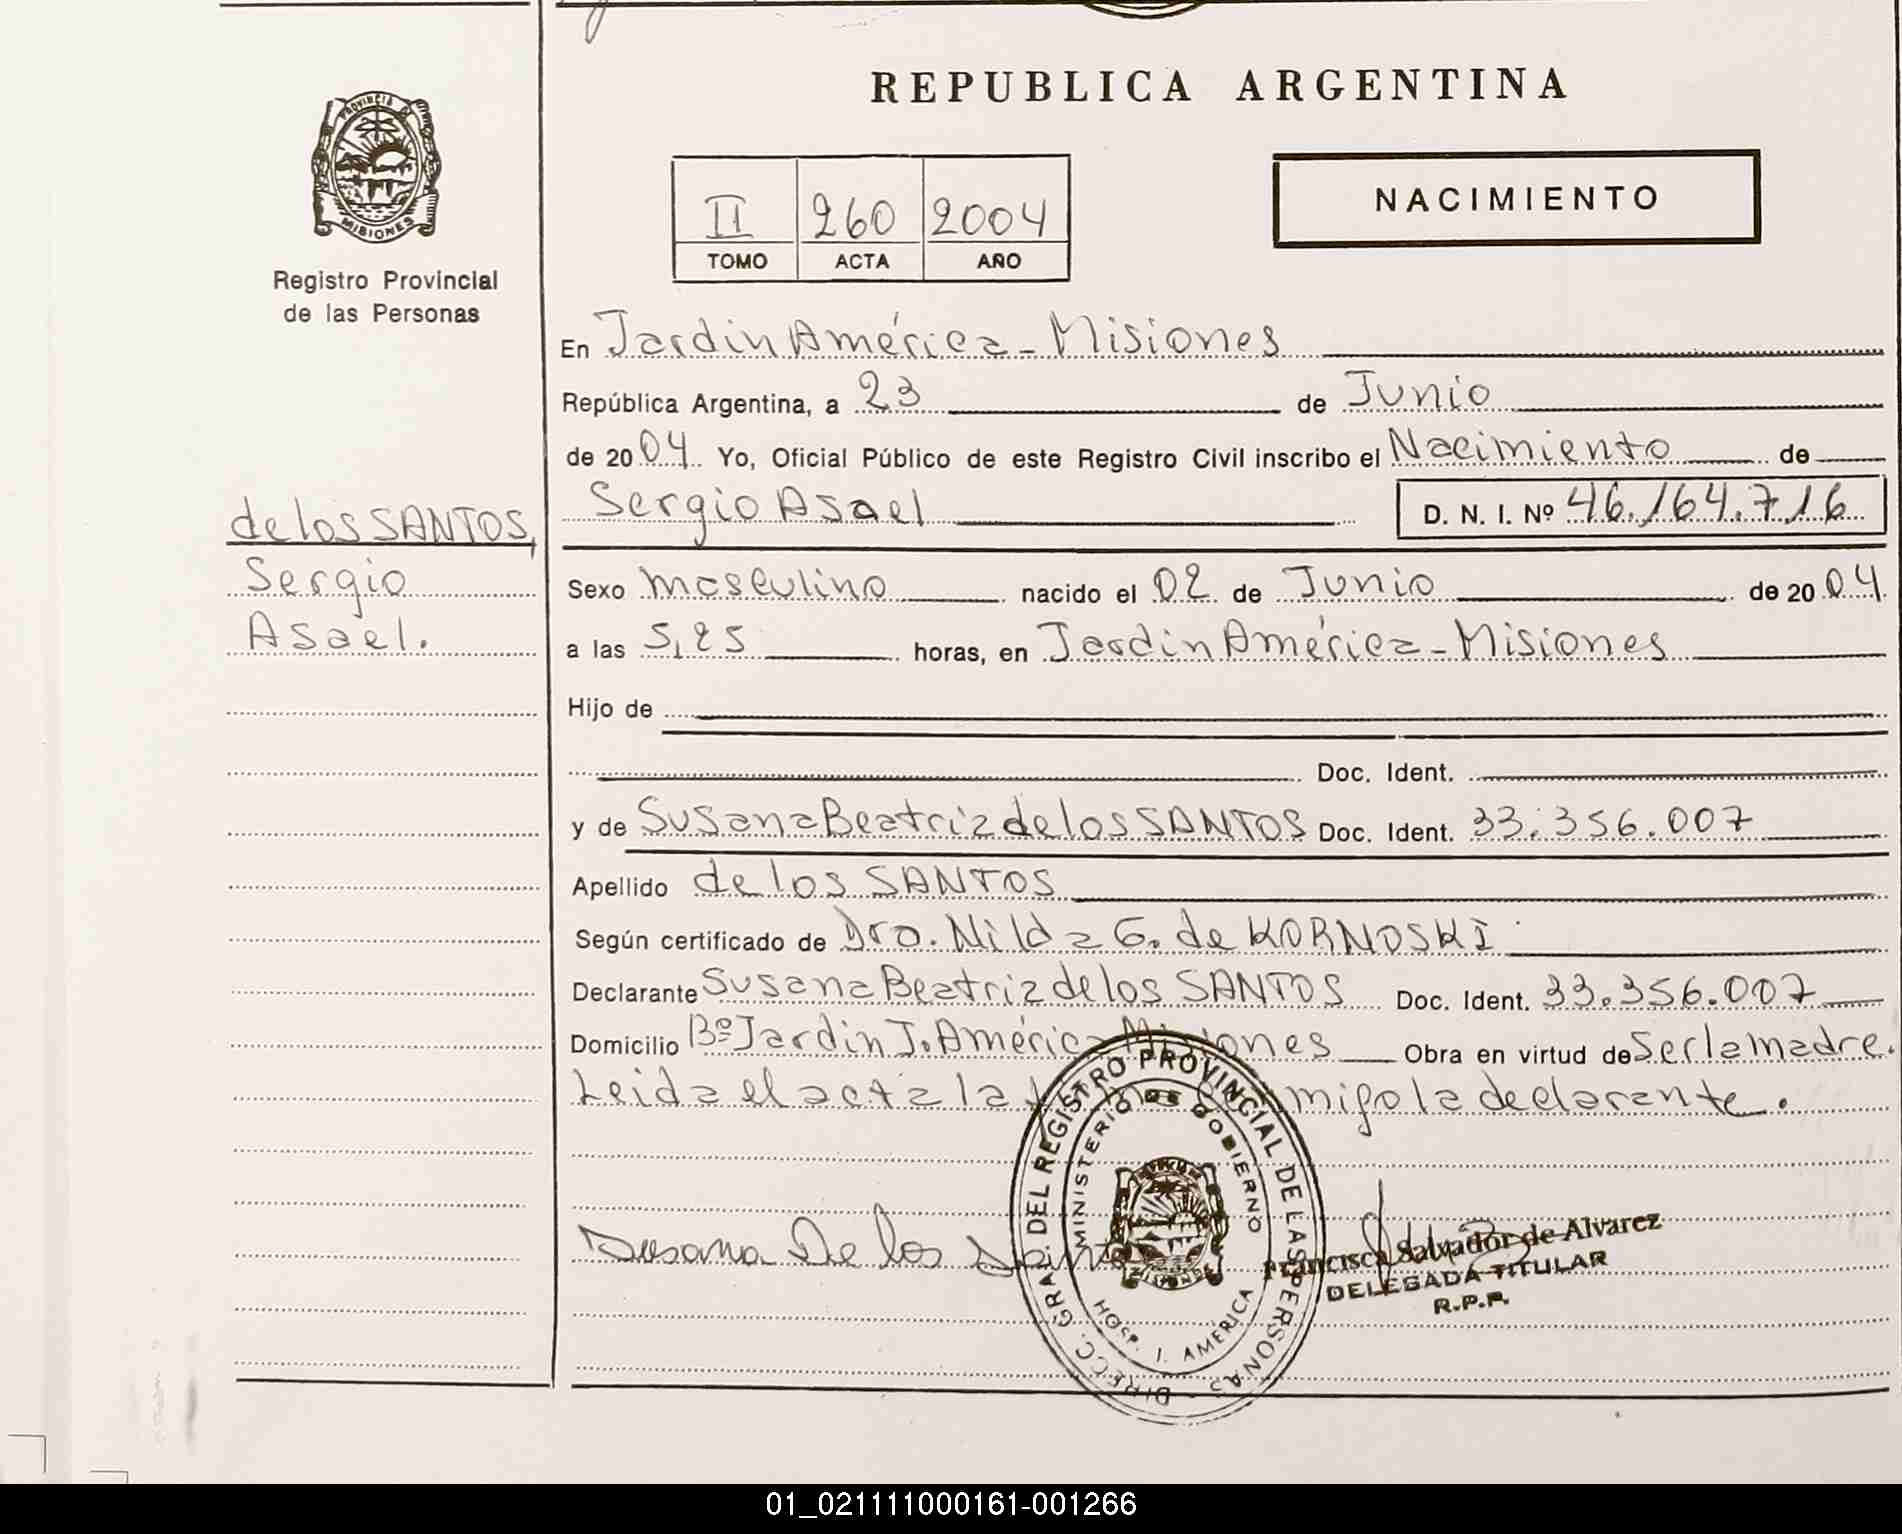 REPUBLICA ARGENTINA
PROVINCIA
MISIONES
Registro Provincial
de las Personas
II 260 2004
TOMO ACTA AÑO
NACIMIENTO
En Jardin América - Misiones
República Argentina, a 23 de Junio
de 2004 Yo, Oficial Público de este Registro Civil inscribo el Nacimiento de
Sergio Asael D. N. I. Nº 46.164.716
de los SANTOS,
Sergio
Asael.
Sexo masculino nacido el 02 de Junio de 2004
a las 5,25 horas, en Jardin América - Misiones
Hijo de
Doc. Ident.
y de Susana Beatriz de los SANTOS Doc. Ident. 33.356.007
Apellido de los SANTOS
Según certificado de Dra. Nilda G. de KORNOSKI
Declarante Susana Beatriz de los SANTOS Doc. Ident. 33.356.007
Domicilio Bº Jardin J. América Misiones Obra en virtud de Ser la madre.
Leida el acta la migo la declarante.
DIRECC. GRAL. DEL REGISTRO PROVINCIAL DE LAS PERSONAS
MINISTERIO DE GOBIERNO
MISIONES
HOSP. I. AMERICA
Susana De los Santos
Francisca Salvador de Alvarez
DELEGADA TITULAR
R.P.P.
01_021111000161-001266